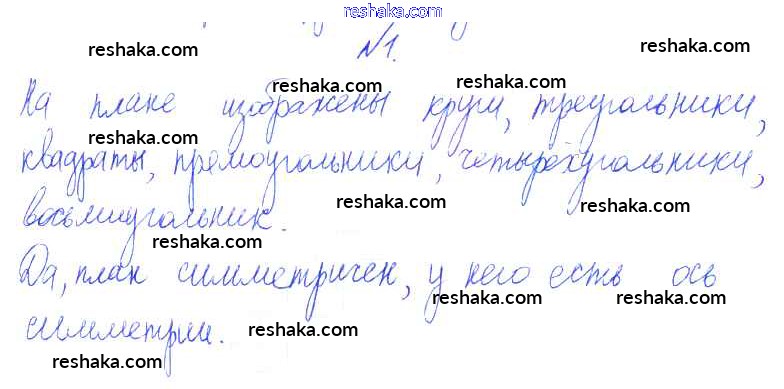 reshaka.com
№1.
reshaka.com
reshaka.com
reshaka.com
reshaka.com
На плане изображены круги, треугольники,
reshaka.com
квадраты, прямоугольники, четырёхугольники,
reshaka.com
reshaka.com
восьмиугольник.
reshaka.com
Да, план симметричен, у него есть ось
reshaka.com
reshaka.com
симметрии.
reshaka.com
reshaka.com